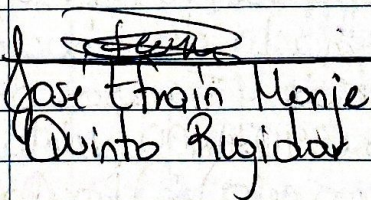 José Efraín Monje
Quinto Regidor